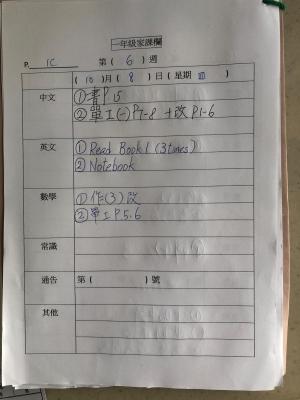 一年級家課欄
P. 1C 第( 6 )週
(10)月(8)日(星期四)
中文 ①書P15
②單工(一)P7-8 +改P1-6
英文 ①Read Book1 (3times)
②Notebook
數學 ①作(3)改
②單工P.5.6
常識
通告 第( )號
其他